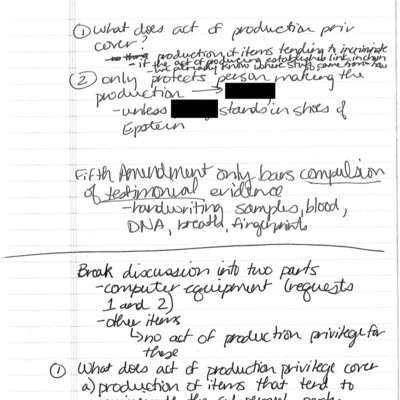 ① What does act of production priv
cover?
production of items tending to incriminate
- if the act of producing establishes link in chain
- we already know whose stuff came from now
② only protects person making the
production →
- unless stands in shoes of
Epstein
Fifth Amendment only bars compulsion
of testimonial evidence
- handwriting samples, blood,
DNA, breath, fingerprints
Break discussion into two parts
- computer equipment (requests
1 and 2)
- other items
↳ no act of production privilege for
these
① What does act of production privilege cover
a) production of items that tend to